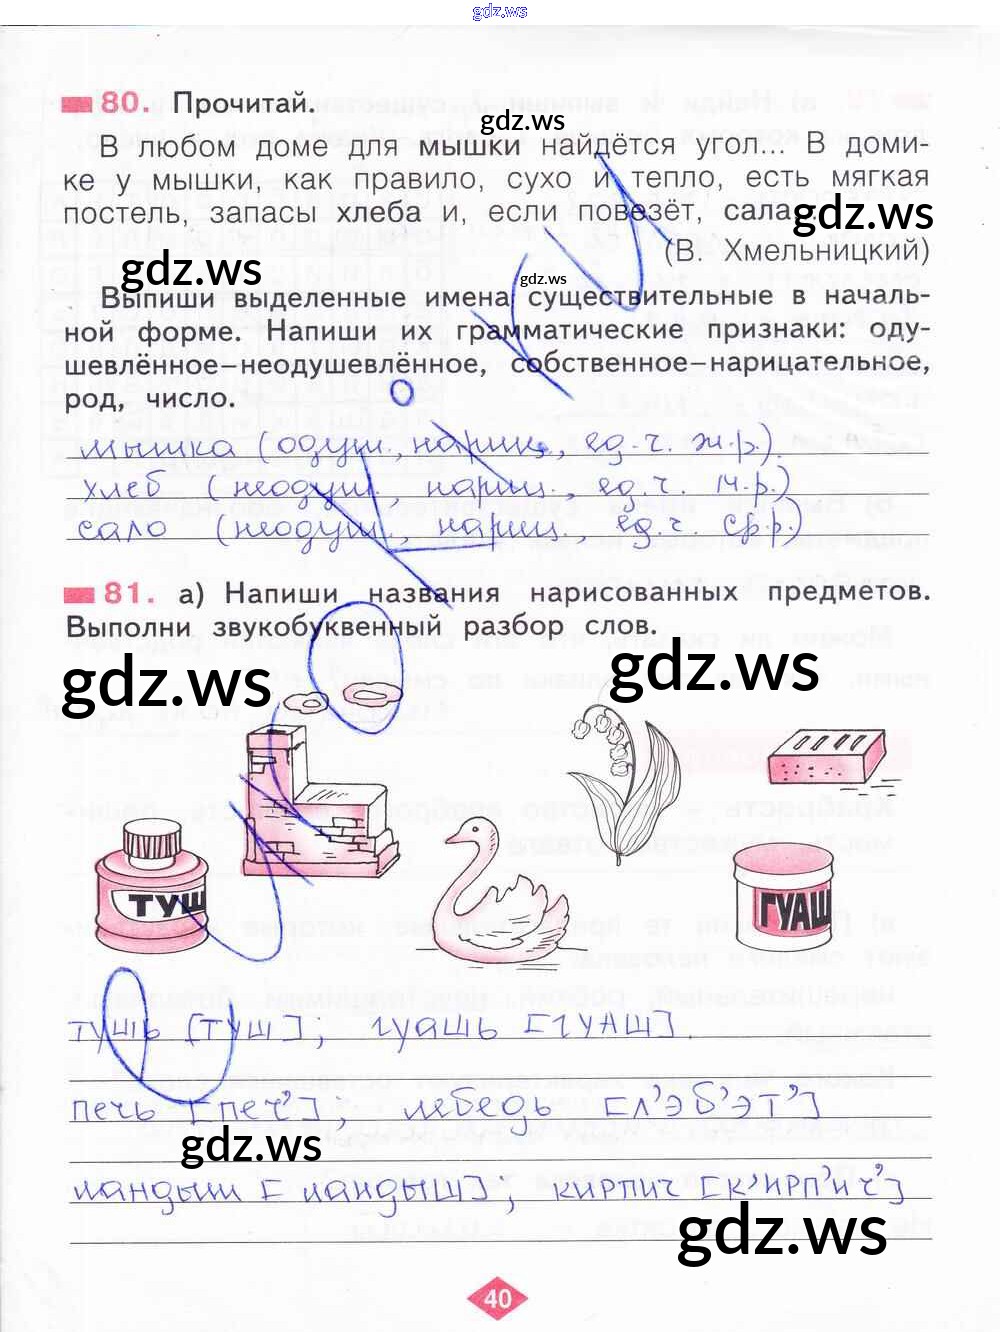 gdz.ws
80. Прочитай.
gdz.ws
В любом доме для мышки найдётся угол... В доми-
ке у мышки, как правило, сухо и тепло, есть мягкая
постель, запасы хлеба и, если повезёт, сала.
gdz.ws
(В. Хмельницкий)
gdz.ws
gdz.ws
Выпиши выделенные имена существительные в началь-
ной форме. Напиши их грамматические признаки: оду-
шевлённое–неодушевлённое, собственное–нарицательное,
род, число.
мышка (одуш., нариц., ед.ч. ж.р.).
хлеб (неодуш., нариц., ед.ч. м.р.)
сало (неодуш., нариц., ед.ч ср.р.)
81. а) Напиши названия нарисованных предметов.
Выполни звукобуквенный разбор слов.
gdz.ws
gdz.ws
ТУШ
ГУАШ
тушь [ТУШ]; гуашь [ГУАШ].
печь [печ’], лебедь [Л’ЭБ’ЭТ’]
gdz.ws
ландыш [ландыш]; кирпич [К’ИРП’ИЧ’]
gdz.ws
40